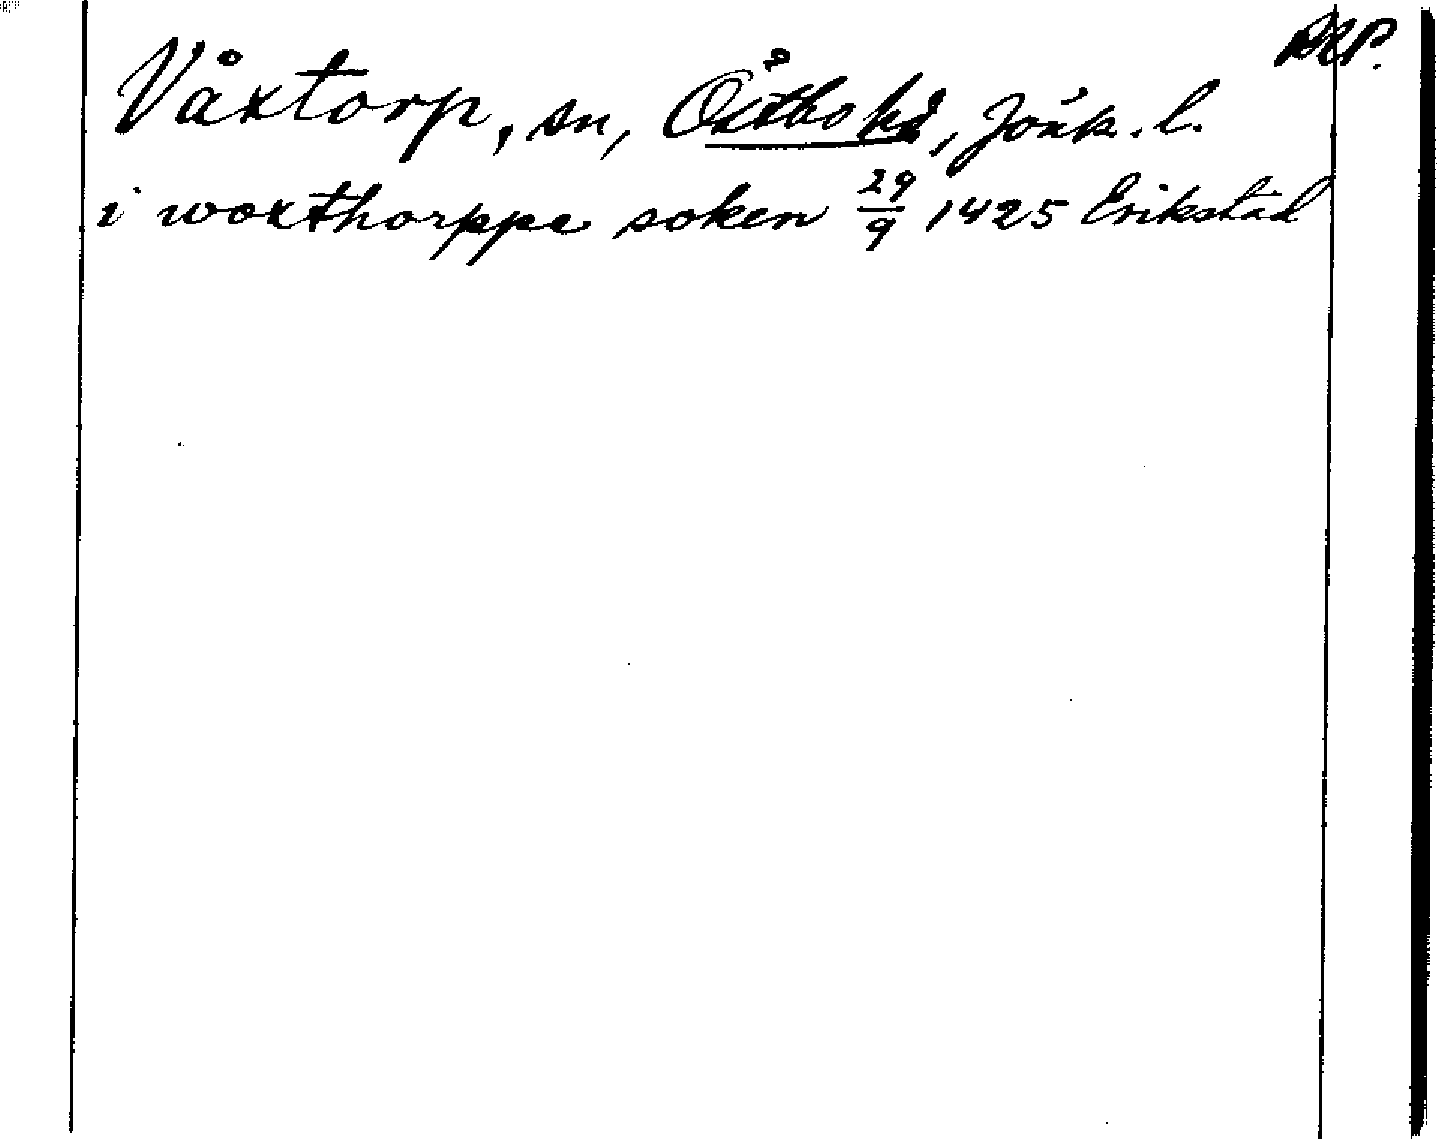 Våxtorp, sn, Östbo hd, Jönk. l.
i woxthorppe soken 29/9 1425 Erikstad